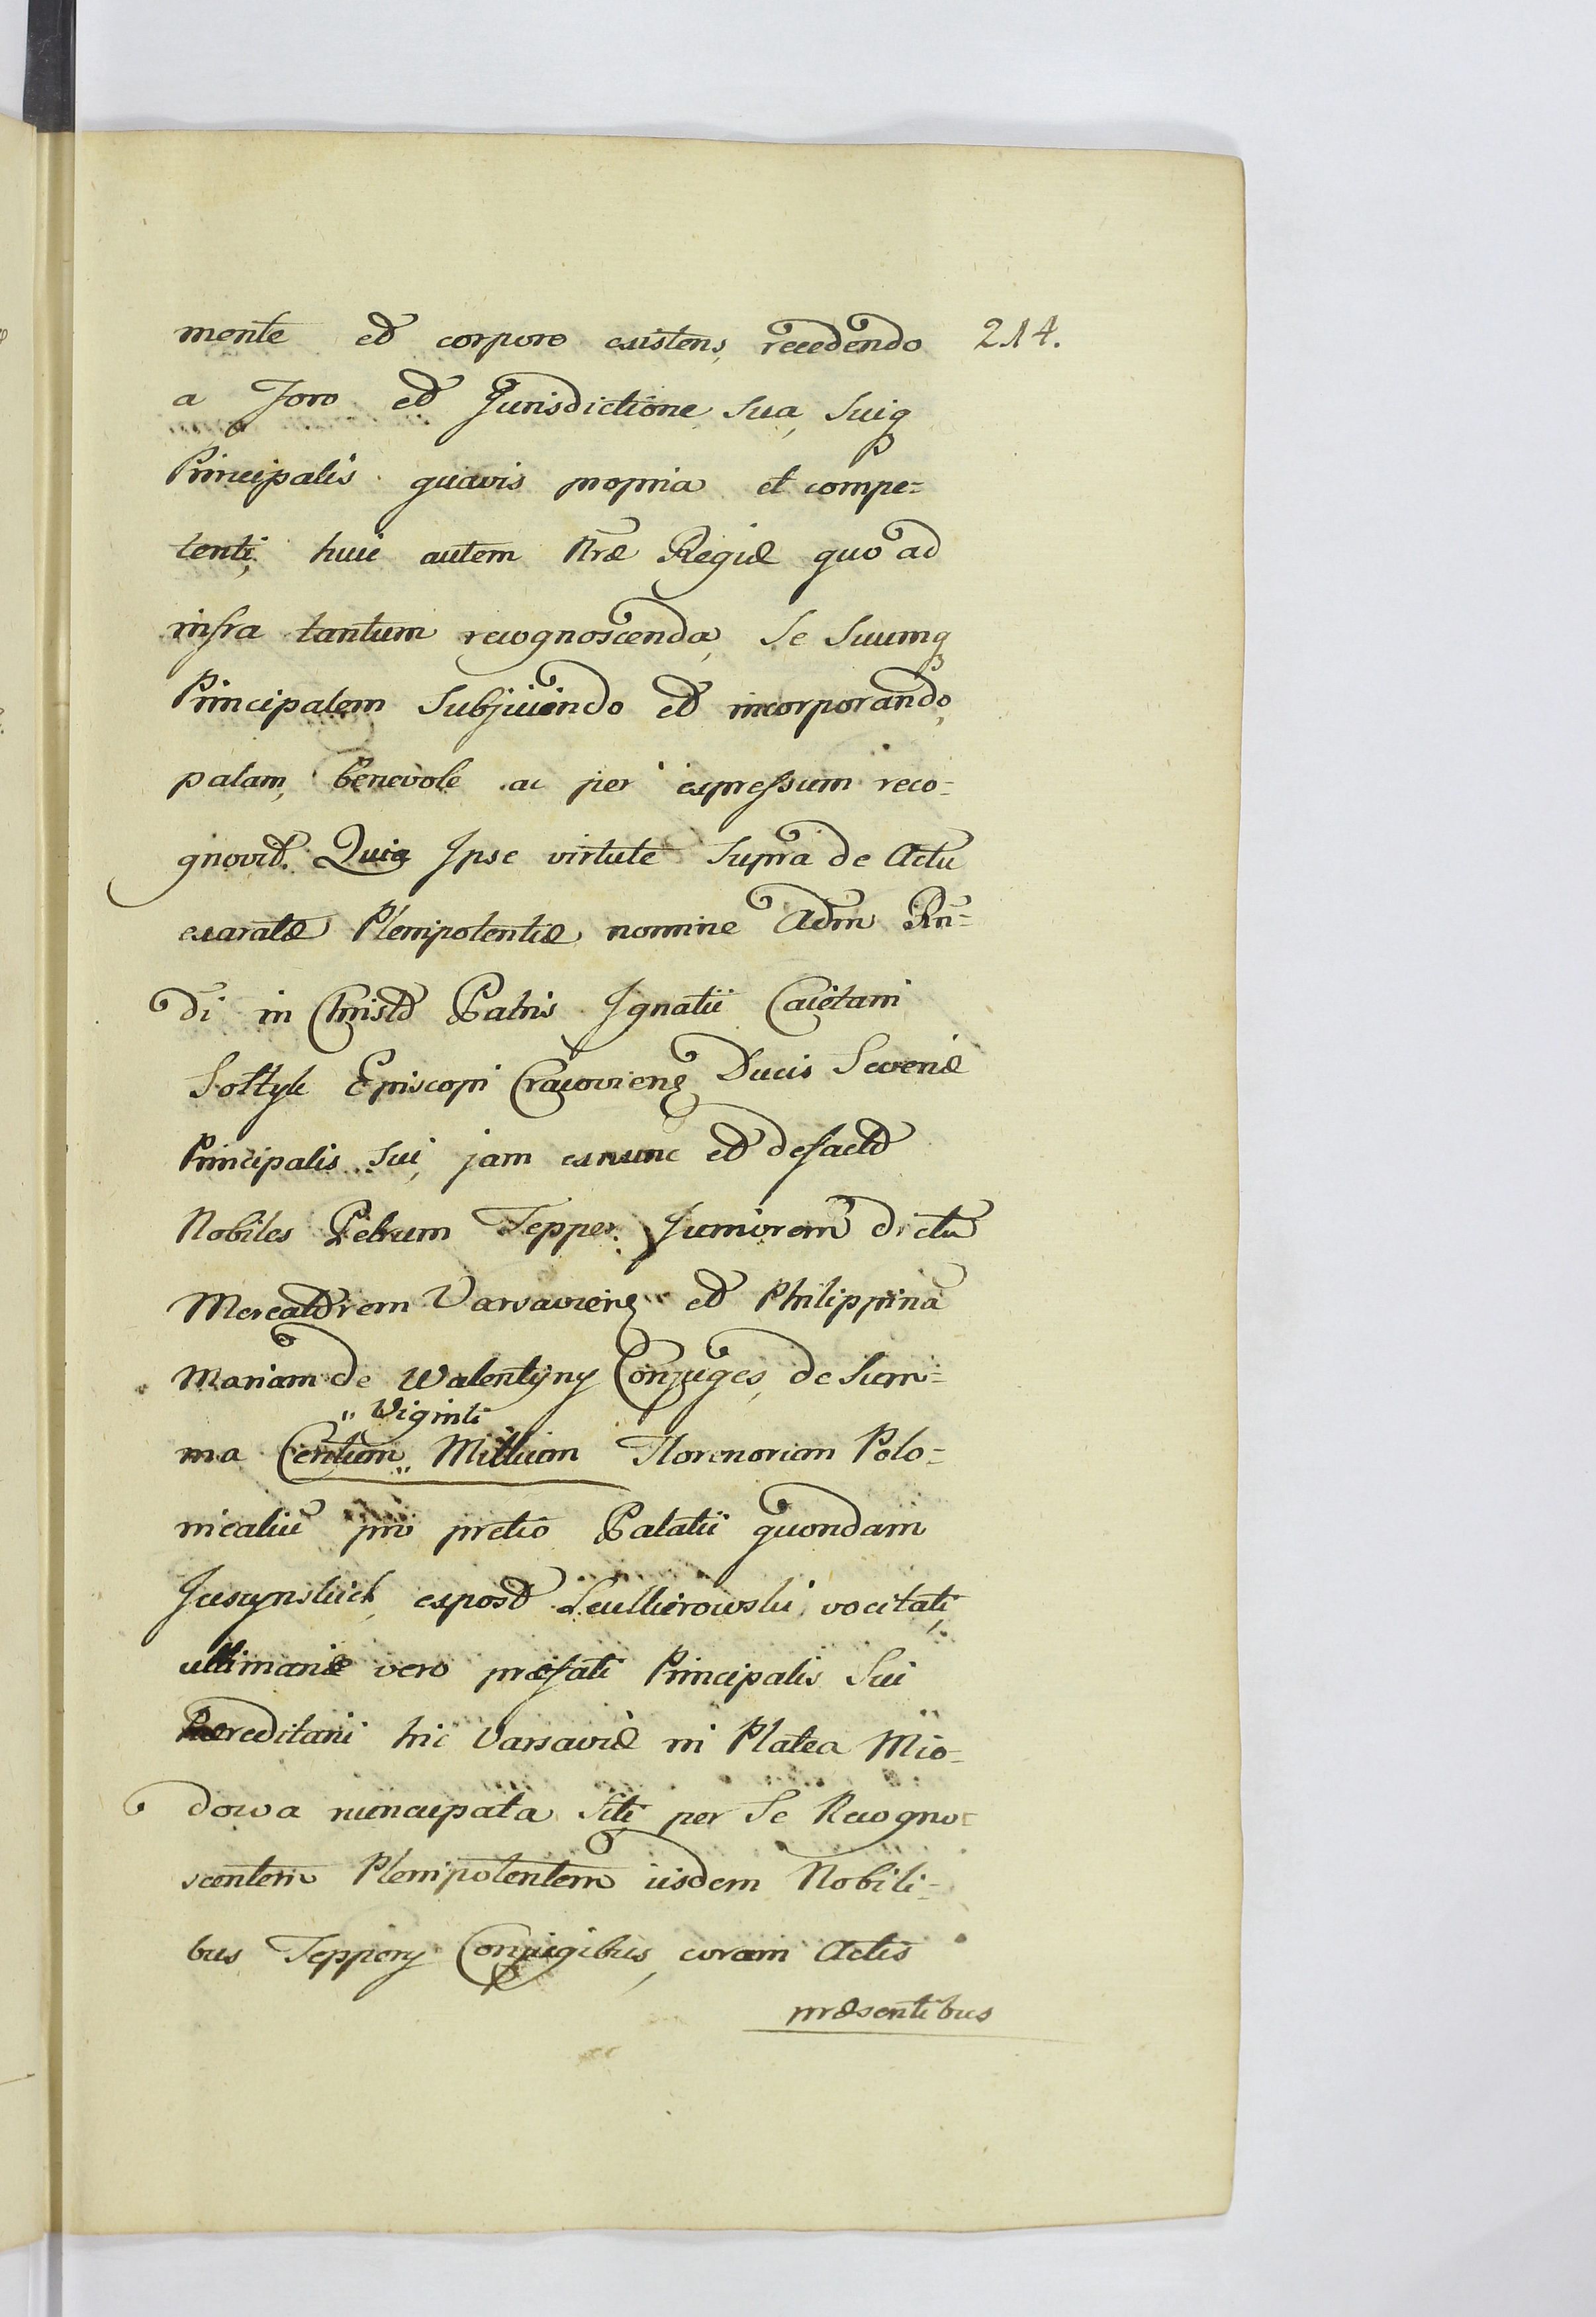 mente et corpore existens, recedendo 214.
a Foro et Jurisdictione sua, suiq
Principalis quavis propria et compe=
tenti, huic autem Nrae Regiae quo ad
infra tantum recognoscenda, Se Suumq
Principalem Subjiciendo et incorporando,
palam, benevole ac per expressum reco=
gnovit. Quia Ipse virtute supra de Actu
exaratae Plenipotentiae nomine Adm Rn=
di in Christo Patris Ignatii Caietani
Sołtyk Episcopi Cracovien Ducis Severiae
Principalis sui, jam exnunc et defacto
Nobiles Petrum Tepper Juniorem dictu
Mercatorem Varsavien et Philippina
Mariam de Walentyny Conjuges, de Sum=
" Viginti
ma Centum" Millium Florenorum Polo=
nicaliu pro pretio Palatii quondam
expost vocitati,
ultimarie vero praefati Principalis Sui
Haereditarii hic Varsaviae in Platea Mio=
dowa nuncupata siti per Se Recogno=
scentem Plenipotentem iisdem Nobili=
bus Teppery Conjugibus, coram Actis
praesentibus